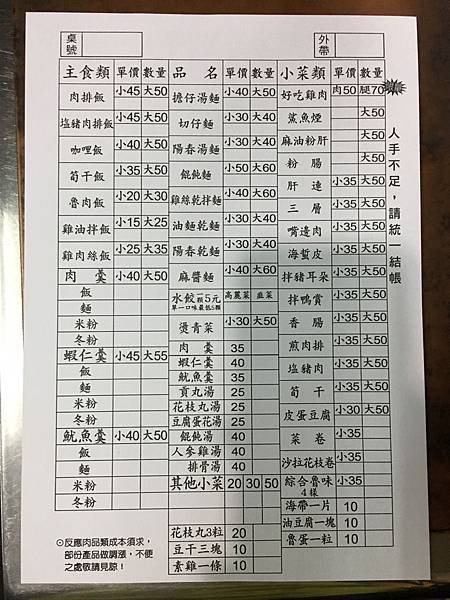 桌號
外帶
主食類 單價 數量
肉排飯 小45 大50
塩豬肉排飯 小45 大50
咖哩飯 小40 大50
筍干飯 小35 大50
魯肉飯 小20 大30
雞油拌飯 小15 大25
雞肉絲飯 小25 大35
肉羹 小40 大50
飯
麵
米粉
冬粉
蝦仁羹 小45 大55
飯
麵
米粉
冬粉
魷魚羹 小40 大50
飯
麵
米粉
冬粉
⊙反應肉品類成本須求，
部份產品做調漲，不便
之處敬請見諒！
品名 單價 數量
擔仔湯麵 小40 大50
切仔麵 小30 大40
陽春湯麵 小30 大40
餛飩麵 小50 大60
雞絲乾拌麵 小40 大60
油麵乾麵 小30 大40
陽春乾麵 小30 大40
麻醬麵 小40 大60
水餃一顆5元 高麗菜 韭菜
單一口味最低5顆
燙青菜 小30 大50
肉羹 35
蝦仁羹 40
魷魚羹 35
貢丸湯 25
花枝丸湯 25
豆腐蛋花湯 25
餛飩湯 40
人參雞湯 40
排骨湯 40
其他小菜 20 30 50
花枝丸3粒 20
豆干三塊 10
素雞一條 10
小菜類 單價 數量
好吃雞肉 肉50 腿70
鯊魚煙 大50
麻油粉肝 大50
粉腸 大50
肝連 小35 大50
三層 小35 大50
嘴邊肉 小35 大50
海蜇皮 小35 大50
拌豬耳朵 小35 大50
拌鴨賞 小35 大50
香腸 小35 大50
煎肉排 小35 大50
塩豬肉 小35 大50
筍干 小35 大50
皮蛋豆腐 小30 大50
菜卷 小35
沙拉花枝卷 小35
綜合魯味 小35
4樣
海帶一片 10
油豆腐一塊 10
魯蛋一粒 10
人手不足，請統一結帳